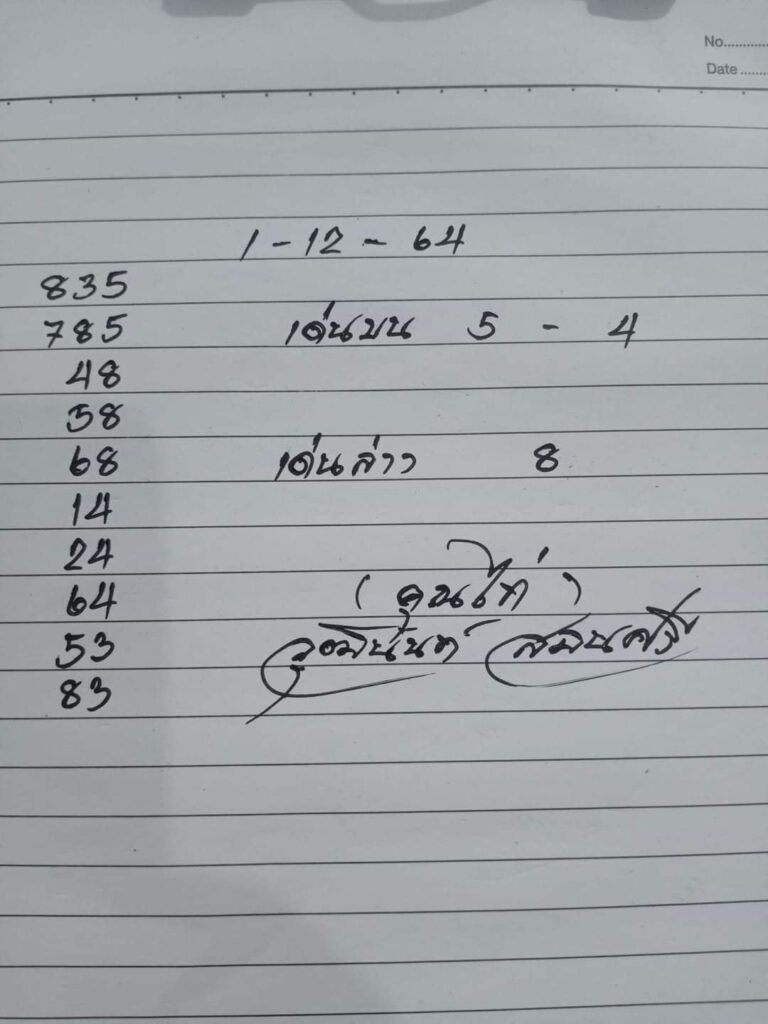 No............
Date ........
1 - 12 - 64
835
785 เด่นบน 5 - 4
48
58
68 เด่นล่าง 8
14
24
64
53
83